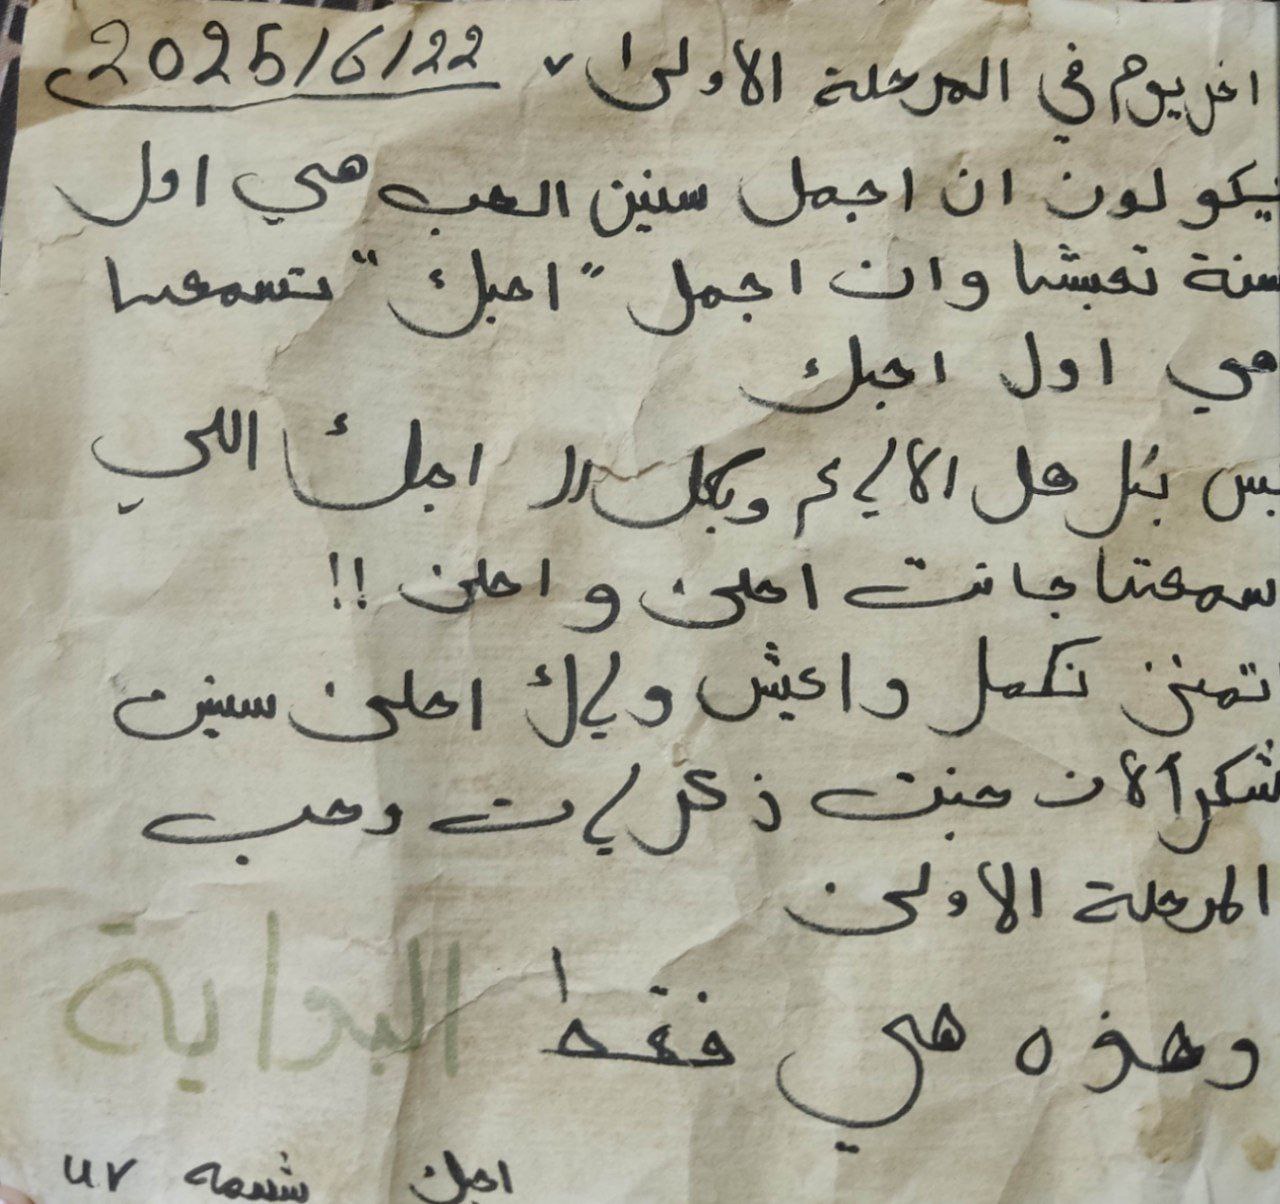 اخر يوم في المرحلة الاولى 2025/6/22
يكولون ان اجمل سنين الحب هي اول
سنة تعيشها وان اجمل "احبك" تسمعها
هي اول احبك
بس بكل هل الايام وبكل احبك اللي
سمعتها جانت احلى واحلى !!
اتمنى نكمل واعيش وياك احلى سنين
شكراً لان جنت ذكريات وحب
المرحلة الاولى
وهذه هي فقط البداية
احبك